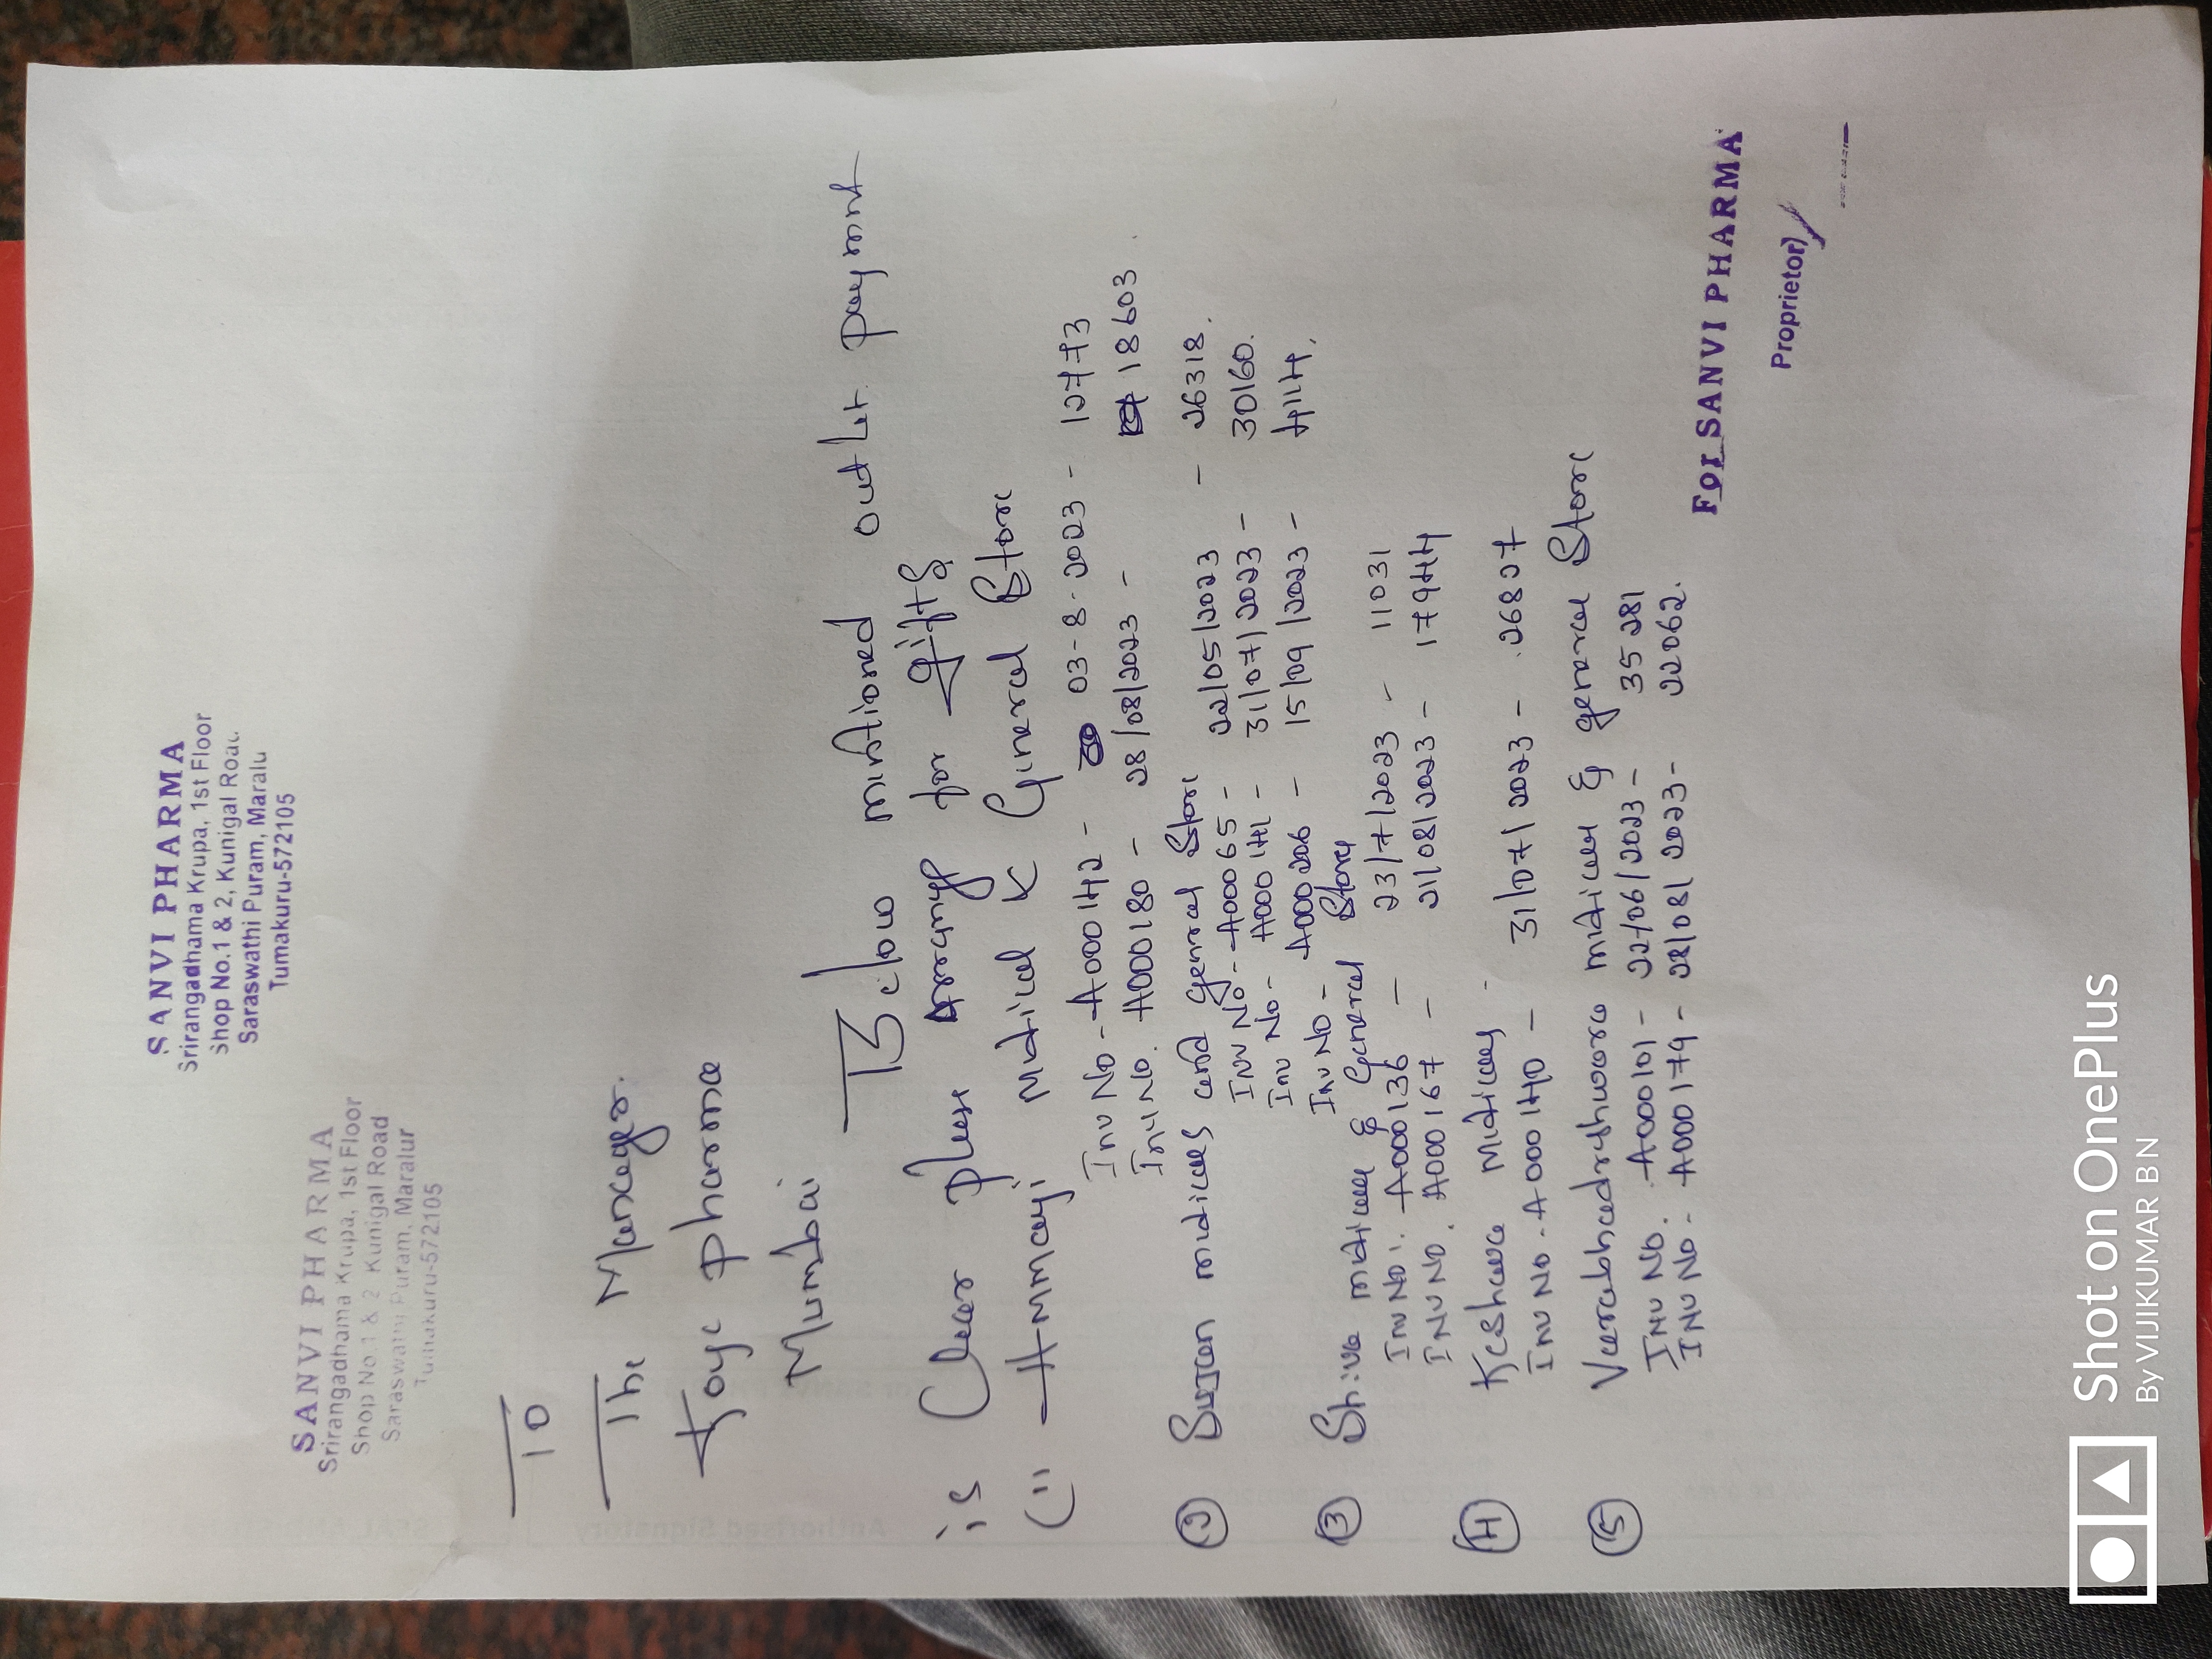 SANVI PHARMA
Srirangadhama Krupa, 1st Floor
Shop No.1 & 2, Kunigal Road
Saraswathi Puram, Maralur
Tumakuru-572105
SANVI PHARMA
Srirangadhama Krupa, 1st Floor
Shop No.1 & 2, Kunigal Road
Saraswathi Puram, Maralu
Tumakuru-572105
To
The Manager.
Joye pharma
Mumbai
Below mintioned outlet paymnt
is Clear please arrange for gifts
(1) Ammaji Midical & Gineral Store
Inv No - A000142 - 03-8-2023 - 12773
Inv No. A000180 - 28/08/2023 - 18603.
(2) Sujan midicals and general Store
Inv No - A000065 - 22/05/2023 - 26318.
Inv No - A000141 - 31/07/2023 - 30160.
Inv No - A000206 - 15/09/2023 - 41114.
(3) Shiva midicals & General Store
Inv No. A000136 - 23/7/2023 - 11031
Inv No. A000167 - 21/08/2023 - 17944
(4) Keshava Midicals -
Inv No - A000140 - 31/07/2023 - 26827
(5) Veerabhadreshwara midicals & general Store
Inv No. A000101 - 22/06/2023 - 35281
Inv No - A000179 - 28/08/2023 - 22062.
For SANVI PHARMA
Proprietor
Shot on OnePlus
By VIJIKUMAR BN